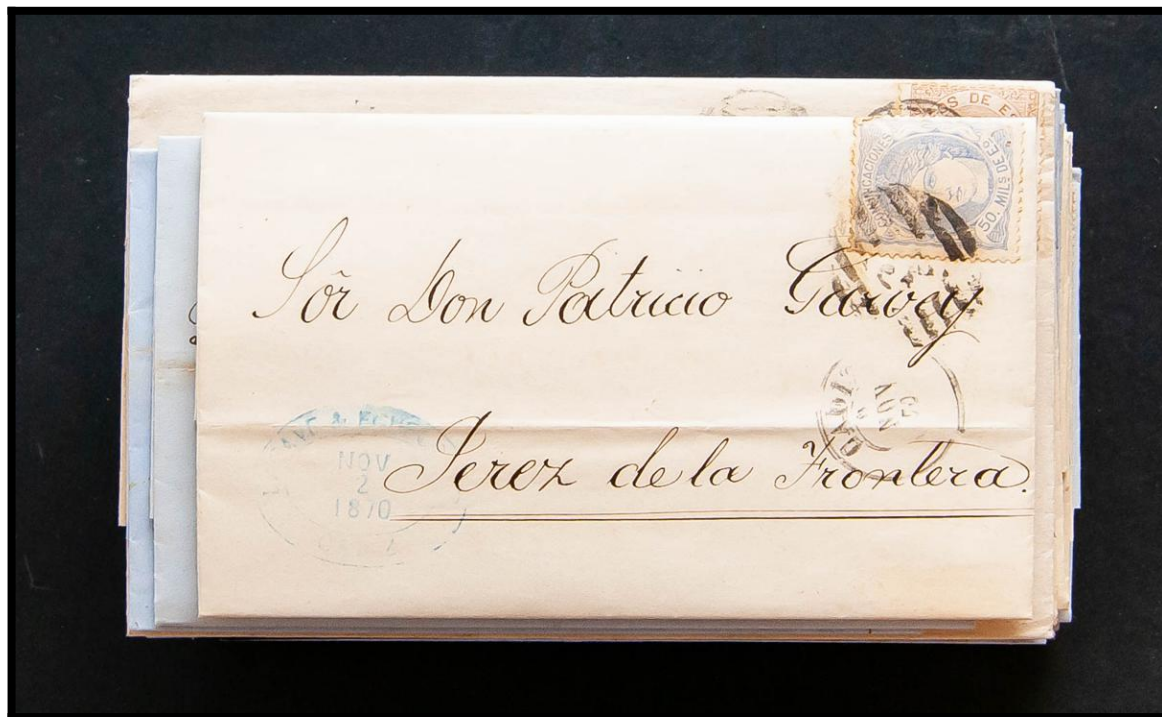 S DE ES
COMUNICACIONES
50. MILS DE Eº
Sõr Don Patricio Garvey
CADIZ
NOV
NOV
2
1870
Jerez de la Frontera.